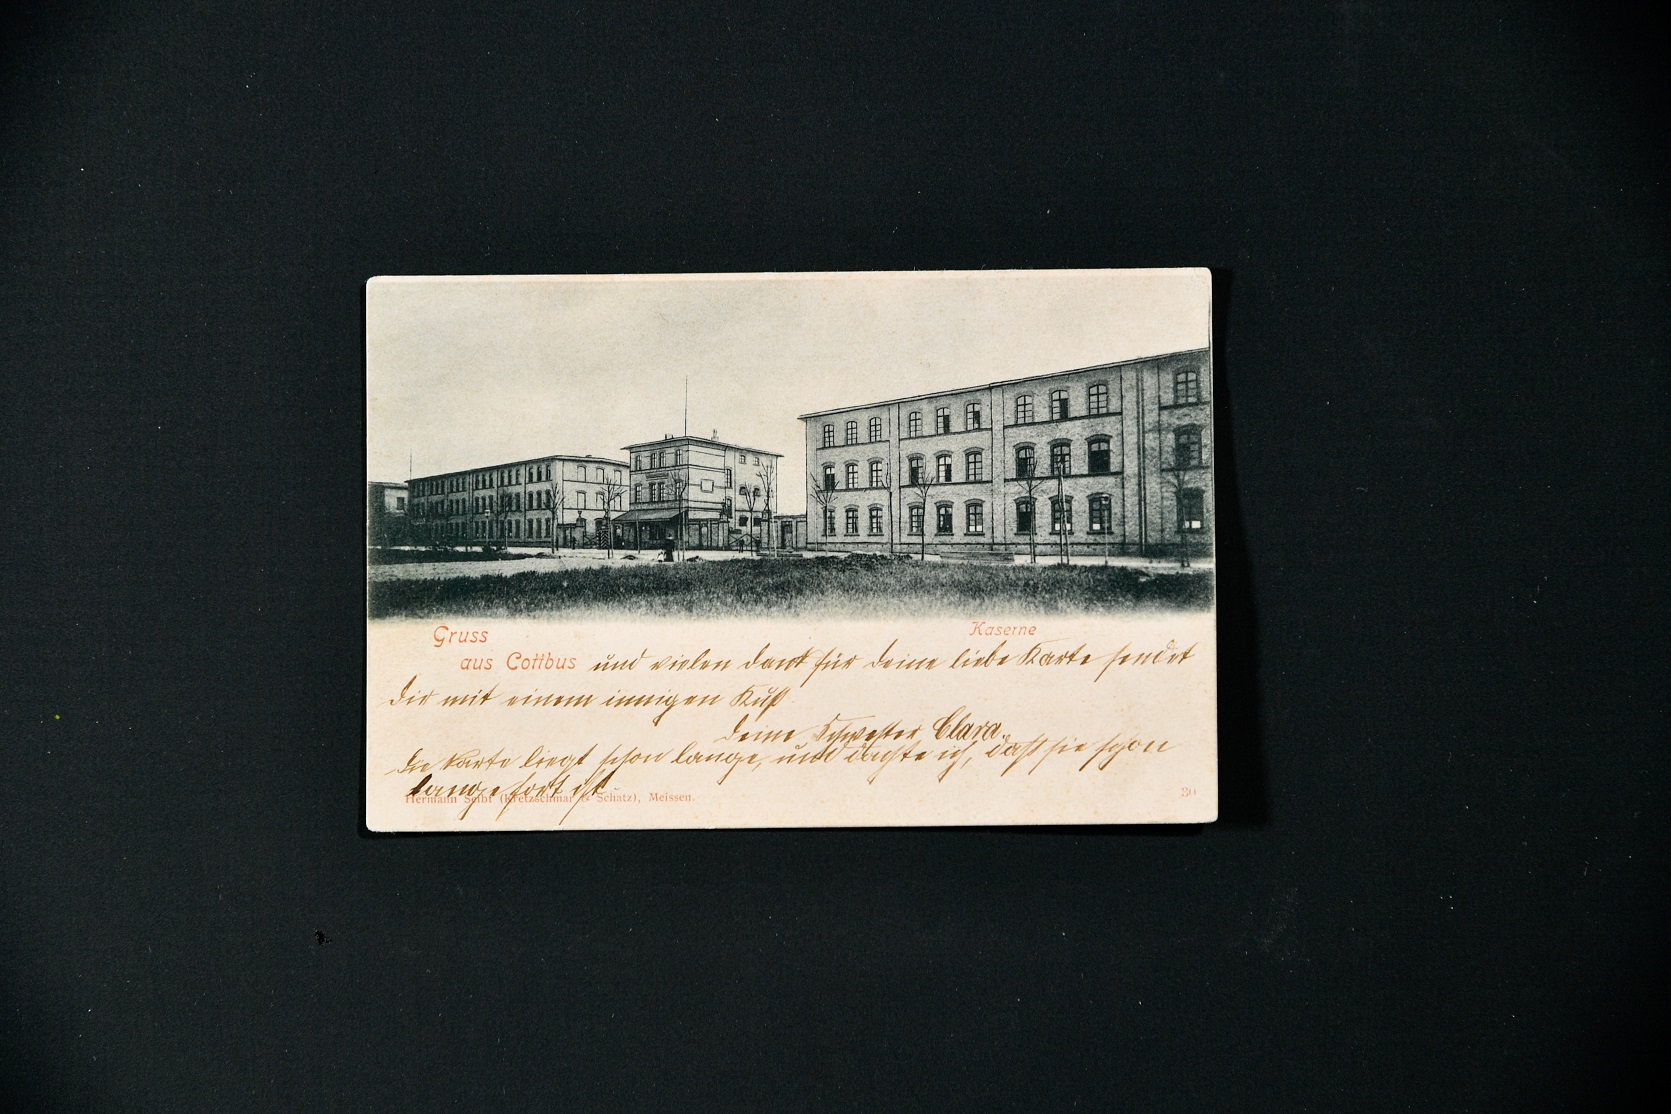 Gruss
Kaserne
aus Cottbus und vielen Dank für Deine liebe Karte sendet
Dir mit einem innigen Kuß
Deine Schwester Clara.
Die Karte liegt schon lange, und dachte ich, daß sie schon
lange fort ist
Hermann Seibt (Kretzschmar & Schatz), Meissen.
30